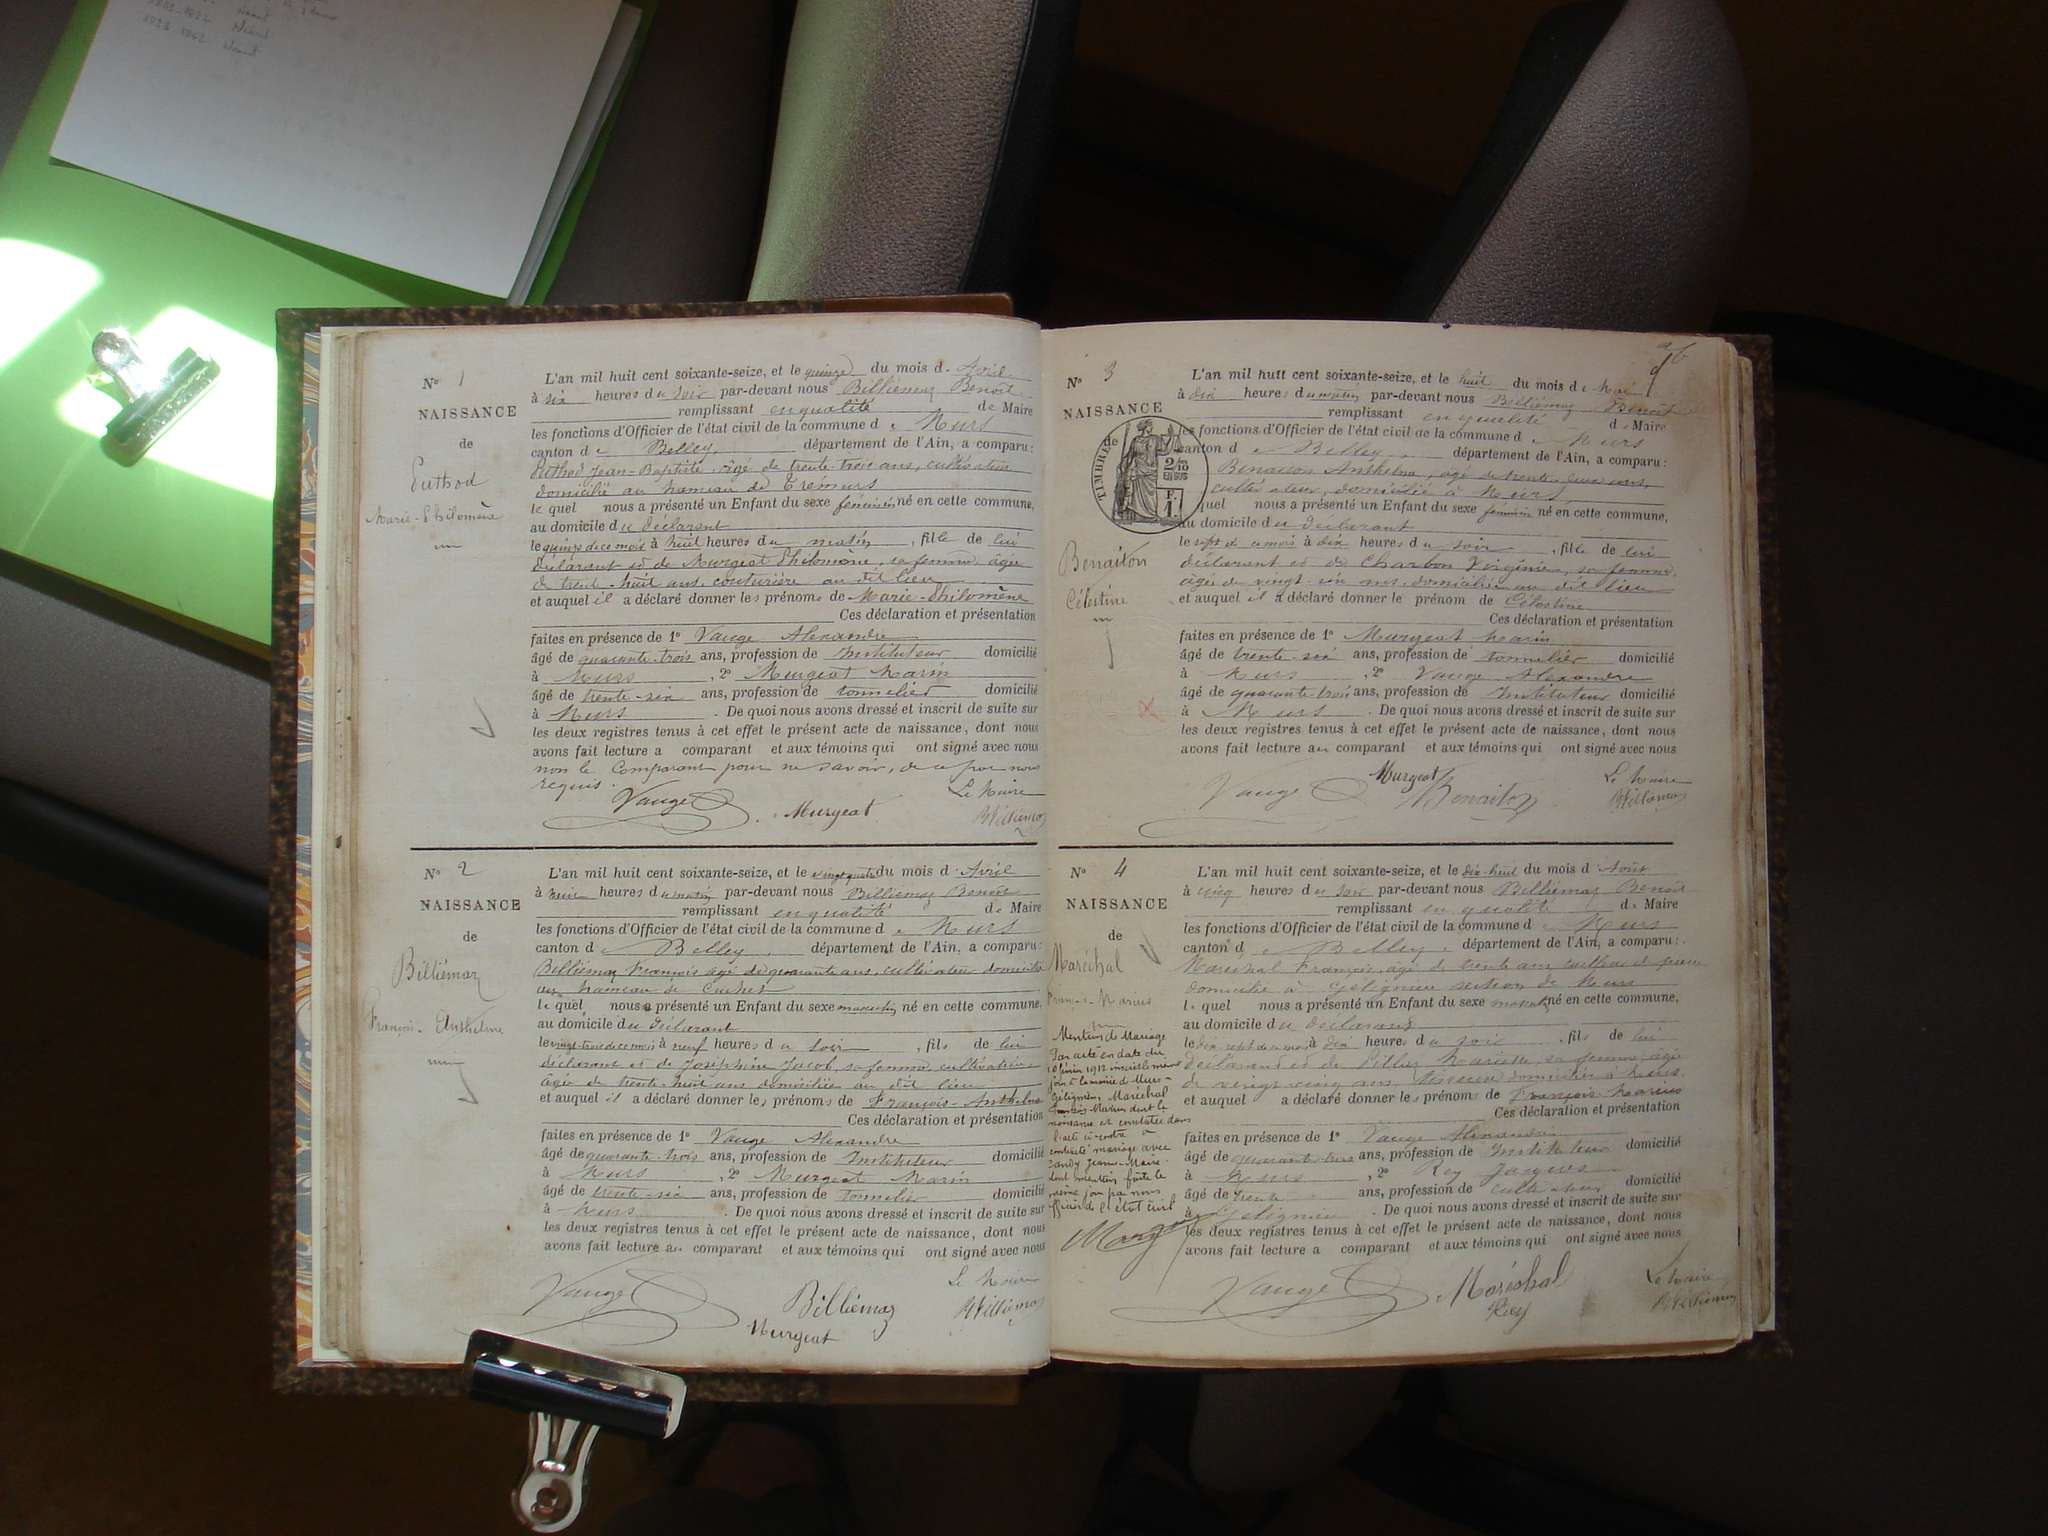 1821-1822 Néant
1823-1842 Néant
N° 1
NAISSANCE
de
Marie-Philomène
L'an mil huit cent soixante-seize, et le quinze du mois d. Avril
à six heures du soir par-devant nous Billiémaz Benoit
remplissant en qualité de Maire
les fonctions d'Officier de l'état civil de la commune de Murs
canton de Belley, département de l'Ain, a comparu :
Jean-Baptiste, âgé de trente-trois ans, cultivateur
domicilié au hameau de Trémurs
le quel nous a présenté un Enfant du sexe féminin né en cette commune,
au domicile du déclarant
le quinze de ce mois à huit heures du matin, fille de lui
déclarant et de Murgeat Philomène, sa femme, âgée
de trent-huit ans, couturière au dit lieu
et auquel il a déclaré donner les prénoms de Marie-Philomène
Ces déclaration et présentation
faites en présence de 1° Vauge Alexandre
âgé de quarante-trois ans, profession de Instituteur domicilié
à Murs, 2° Murgeat Marin
âgé de trente-six ans, profession de tonnelier domicilié
à Murs. De quoi nous avons dressé et inscrit de suite sur
les deux registres tenus à cet effet le présent acte de naissance, dont nous
avons fait lecture a comparant et aux témoins qui ont signé avec nous
non le Comparant pour ne savoir, de ce par nous
requis.
Vauge Murgeat Le Maire
Billiémaz
N° 2
NAISSANCE
de
Billiémaz
François-Anthelme
L'an mil huit cent soixante-seize, et le vingt-quatre du mois d Avril
à heures du matin par-devant nous Billiémaz Benoit
remplissant en qualité de Maire
les fonctions d'Officier de l'état civil de la commune d Murs
canton d Belley, département de l'Ain, a comparu :
Billiémaz François âgé de quarante ans, cultivateur domicilié
au hameau de
le quel nous a présenté un Enfant du sexe masculin né en cette commune,
au domicile du déclarant
le vingt-trois de ce mois à neuf heures du soir, fils de lui
déclarant et de Joséphine Jacob, sa femme, cultivatrice
âgée de trente-huit ans domiciliée au dit lieu
et auquel il a déclaré donner les prénoms de François-Anthelme
Ces déclaration et présentation
faites en présence de 1° Vauge Alexandre
âgé de quarante-trois ans, profession de Instituteur domicilié
à Murs, 2° Murgeat Marin
âgé de trente-six ans, profession de tonnelier domicilié
à Murs. De quoi nous avons dressé et inscrit de suite sur
les deux registres tenus à cet effet le présent acte de naissance, dont nous
avons fait lecture au comparant et aux témoins qui ont signé avec nous
Vauge Billiémaz Le Maire
Murgeat Billiémaz
N° 3
NAISSANCE
de
TIMBRE
2/10 EN SUS
F. 1.
Benaiton
Célestine
L'an mil huit cent soixante-seize, et le huit du mois de Mai
à dix heures du matin par-devant nous Billiémaz Benoit
remplissant en qualité de Maire
les fonctions d'Officier de l'état civil de la commune d Murs
canton d Belley, département de l'Ain, a comparu :
Benaiton Anthelme, âgé de trente-deux ans,
cultivateur, domicilié à Murs,
quel nous a présenté un Enfant du sexe féminin né en cette commune,
au domicile du déclarant
le sept de ce mois à dix heures du soir, fille de lui
déclarant et de Charbon Virginie, sa femme,
âgée de vingt-six ans, domiciliée au dit lieu
et auquel il a déclaré donner le prénom de Célestine
Ces déclaration et présentation
faites en présence de 1° Murgeat Marin
âgé de trente-six ans, profession de tonnelier domicilié
à Murs, 2° Vauge Alexandre
âgé de quarante-trois ans, profession de Instituteur domicilié
à Murs. De quoi nous avons dressé et inscrit de suite sur
les deux registres tenus à cet effet le présent acte de naissance, dont nous
avons fait lecture au comparant et aux témoins qui ont signé avec nous
Vauge Murgeat Benaiton Le Maire
Billiémaz
N° 4
NAISSANCE
de
Maréchal
François-Marius
Mention de Mariage
Par acte en date du
10 février 1912 inscrit le même
jour à la mairie de Murs-
Gélignieu, Maréchal
François-Marius dont la
naissance est constatée dans
l'acte ci-contre a
contracté mariage avec
Candy Jeanne-Marie
dont mention faite le
même jour par nous
officier de l'état civil
L'an mil huit cent soixante-seize, et le dix-huit du mois d Août
à cinq heures du soir par-devant nous Billiémaz Benoit
remplissant en qualité de Maire
les fonctions d'Officier de l'état civil de la commune d Murs
canton d Belley, département de l'Ain, a comparu :
Maréchal François, âgé de trente ans, tailleur de pierre
domicilié à Gélignieu section de Murs
le quel nous a présenté un Enfant du sexe masculin né en cette commune,
au domicile du déclarant
le dix-sept de ce mois à dix heures du soir, fils de lui
déclarant et de Mariette, sa femme, âgée
de vingt-cinq ans, domiciliée à Murs
et auquel a déclaré donner les prénoms de François-Marius
Ces déclaration et présentation
faites en présence de 1° Vauge Alexandre
âgé de quarante-trois ans, profession de Instituteur domicilié
à Murs, 2° Rey Jacques
âgé de trente ans, profession de cultivateur domicilié
à Gélignieu. De quoi nous avons dressé et inscrit de suite sur
les deux registres tenus à cet effet le présent acte de naissance, dont nous
avons fait lecture a comparant et aux témoins qui ont signé avec nous
Vauge Maréchal Le Maire
Rey Billiémaz